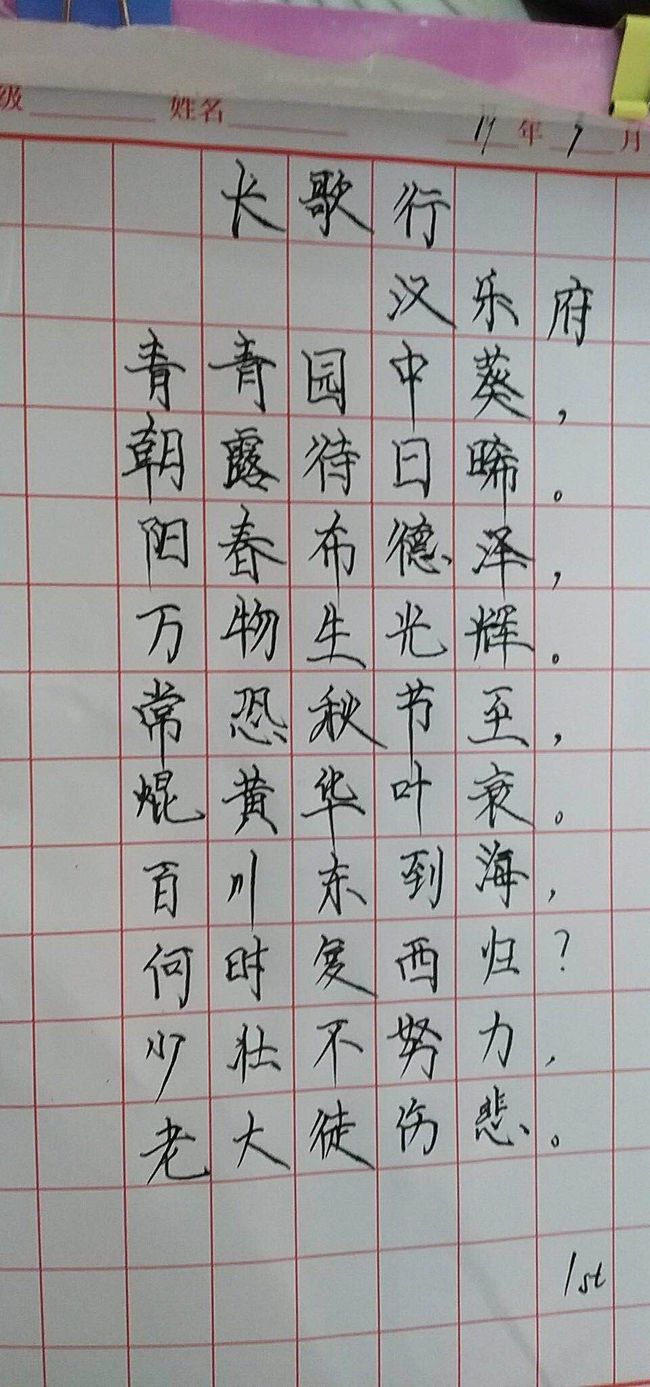 级 姓名 19年9月
长歌行
汉乐府
青青园中葵，
朝露待日晞。
阳春布德泽，
万物生光辉。
常恐秋节至，
焜黄华叶衰。
百川东到海，
何时复西归？
少壮不努力，
老大徒伤悲。
1st